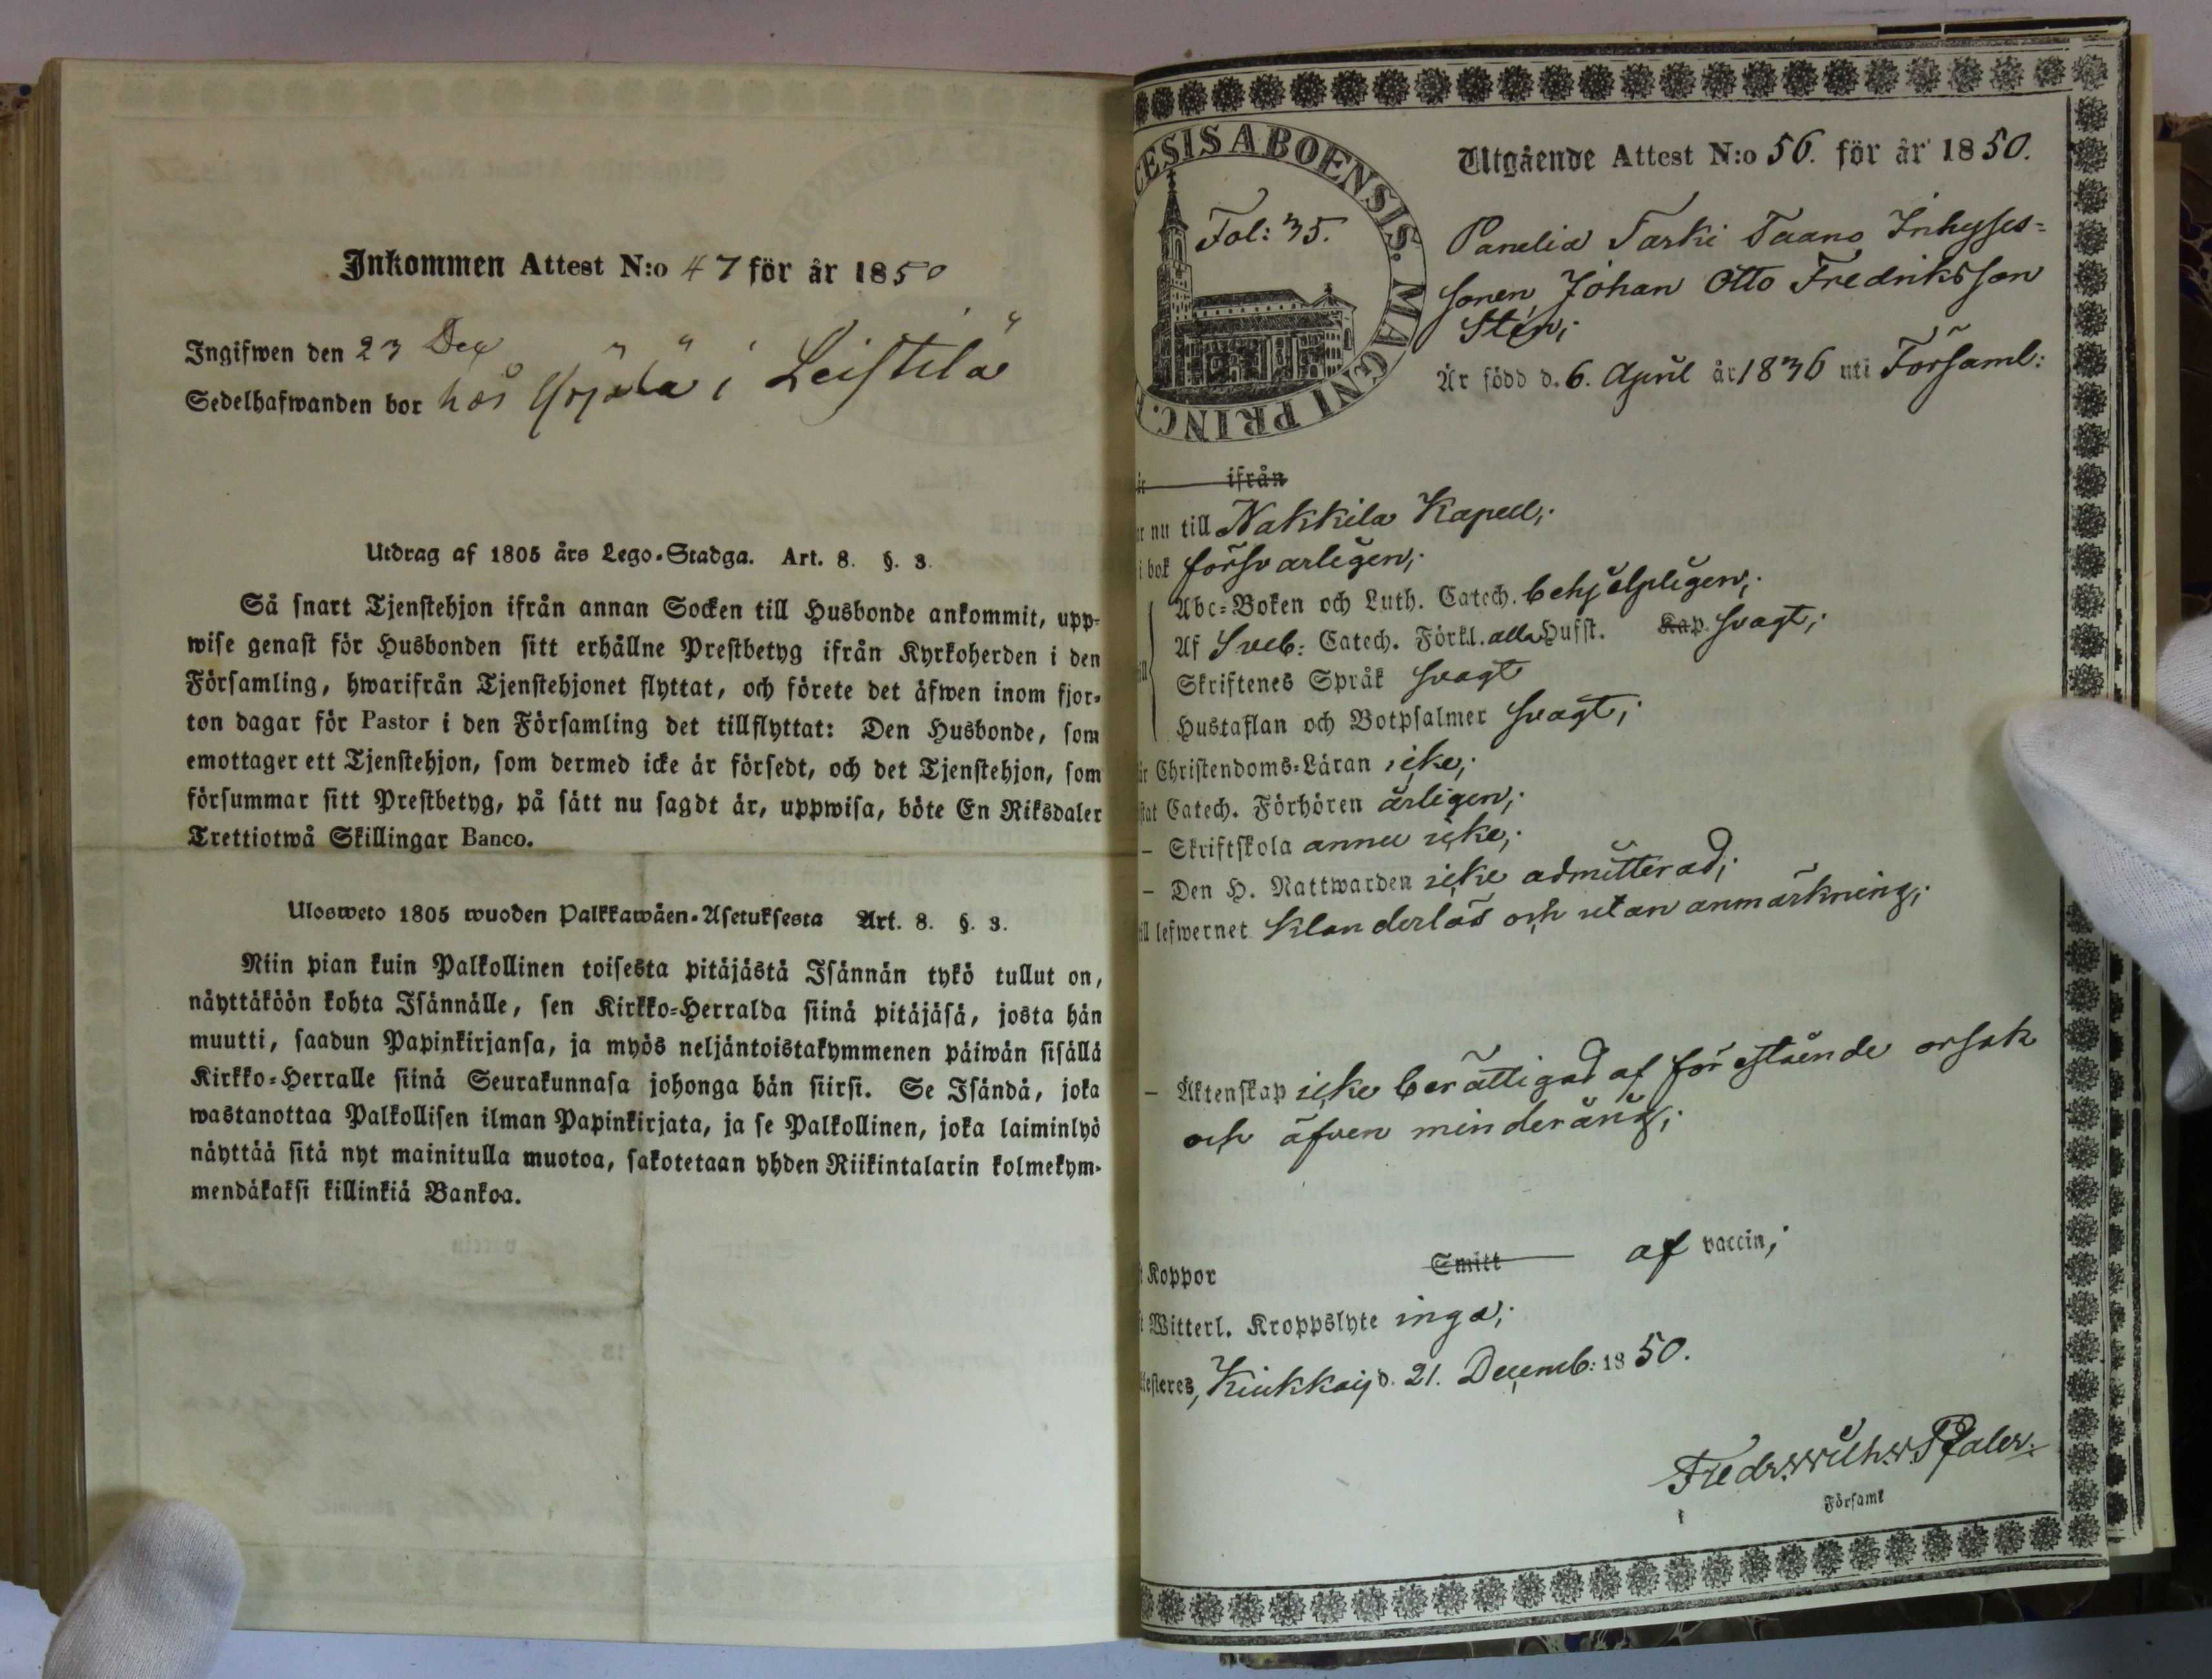 Inkommen Attest N:o 47 för år 1850
Ingifwen den 23 Dec
Sedelhafwanden bor hos i Leistilä
Utdrag af 1805 års Lego-Stadga. Art. 8. §. 3.
Så snart Tjenstehjon ifrån annan Socken till Husbonde ankommit, upp-
wise genast för Husbonden sitt erhållne Prestbetyg ifrån Kyrkoherden i den
Församling, hwarifrån Tjenstehjonet flyttat, och förete det äfwen inom fjor-
ton dagar för Pastor i den Församling det tillflyttat: Den Husbonde, som
emottager ett Tjenstehjon, som dermed icke är försedt, och det Tjenstehjon, som
försummar sitt Prestbetyg, på sätt nu sagdt är, uppwisa, böte En Riksdaler
Trettiotwå Skillingar Banco.
Ulosweto 1805 wuoden Palkkawäen-Asetuksesta Art. 8. §. 3.
Niin pian kuin Palkollinen toisesta pitäjästä Isännän tykö tullut on,
näyttäköön kohta Isännälle, sen Kirkko-Herralda siinä pitäjäsä, josta hän
muutti, saadun Papinkirjansa, ja myös neljäntoistakymmenen päiwän sisällä
Kirkko-Herralle siinä Seurakunnasa johonga hän siirsi. Se Isändä, joka
wastanottaa Palkollisen ilman Papinkirjata, ja se Palkollinen, joka laiminlyö
näyttää sitä nyt mainitulla muotoa, sakotetaan yhden Riikintalarin kolmekym-
mendäkaksi killinkiä Bankoa.
CESIS ABOENSIS. MAGNI PRINC.
Fol: 35.
Utgående Attest N:o 56. för år 1850.
Panelia Tarki Taano Inhyses-
sonen Johan Otto Fredriksson
Stén;
Är född d. 6. April år 1836 uti Församl:
ifrån
nu till Nakkila Kapell;
i bok försvarligen;
Abc-Boken och Luth. Catech. behjelpligen;
Af Sveb: Catech. Förkl. alla Hufst. Kap. svagt;
Skriftenes Språk svagt
Hustaflan och Botpsalmer svagt;
Christendoms-Läran icke;
Catech. Förhören årligen;
- Skriftskola ännu icke;
- Den H. Nattwarden icke admitterad;
lefwernet klanderlös och utan anmärkning;
- Äktenskap icke berättigad af förestående orsak
och äfven minderårig;
Koppor Smitt af vaccin;
Witterl. Kroppslyte inga;
Kiukkais d. 21. Decemb: 1850.
Fredr. Wilh. v. Pfaler.
Församl